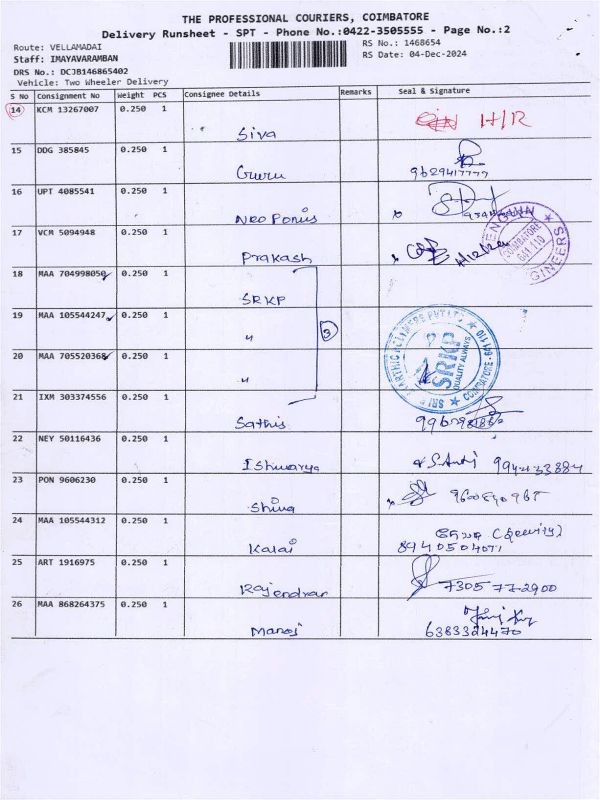 THE PROFESSIONAL COURIERS, COIMBATORE
Delivery Runsheet - SPT - Phone No.:0422-3505555 - Page No.:2
Route: VELLAMADAI
Staff: IMAYAVARAMBAN
DRS No.: DCJB146865402
Vehicle: Two Wheeler Delivery
RS No.: 1468654
RS Date: 04-Dec-2024
S No Consignment No Weight PCS Consignee Details Remarks Seal & Signature
14 KCM 13267007 0.250 1
Siva H/R
15 DDG 385845 0.250 1
Guru 9629417777
16 UPT 4085541 0.250 1
Neo Ponis
17 VCM 5094948 0.250 1
Prakash
COIMBATORE
641 110
18 MAA 704998050 0.250 1
SRKP
19 MAA 105544247 0.250 1
"
3
20 MAA 705520368 0.250 1
"
SRKP
QUALITY ALWAYS
COIMBATORE - 641 110
21 IXM 303374556 0.250 1
Sathis
22 NEY 50116436 0.250 1
Ishwarya
23 PON 9606230 0.250 1
Shiva
24 MAA 105544312 0.250 1
Kalai
25 ART 1916975 0.250 1
Rajendran 7305 772900
26 MAA 868264375 0.250 1
Manoj 6383324470